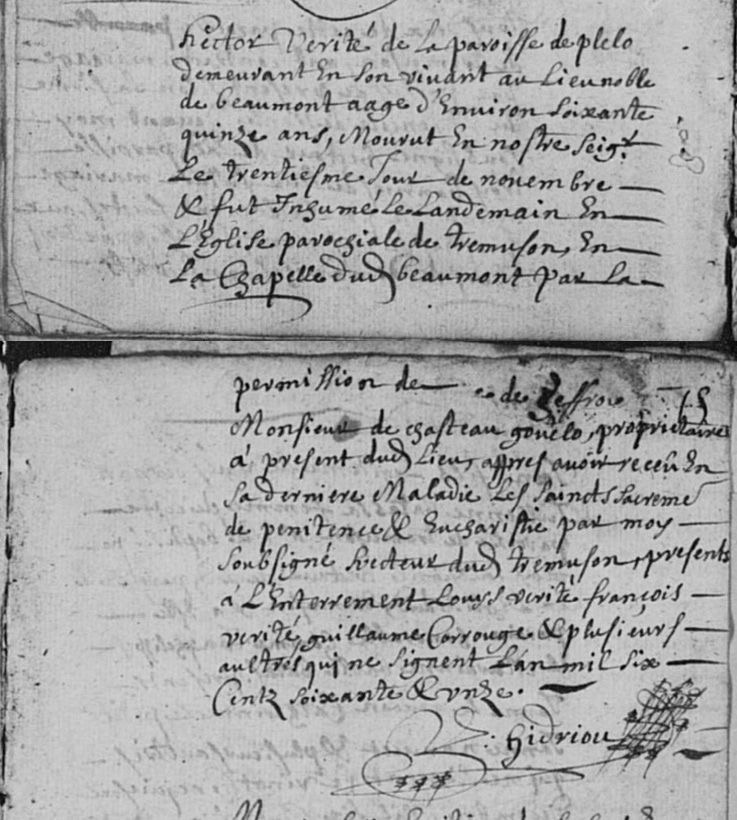 hector Verité de La paroisse de plelo
demeurant En son vivant au Lieu noble
de beaumont aage d'Environ soixante
quinze ans, Mourut En nostre seigr
Le trentiesme Jour de novembre
& fut Inhumé Le Landemain En
L'Eglise parochiale de tremuson, En
La Chapelle dud beaumont par La
permission de
15
Monsieur de chasteau gouëlo, proprietaire
à present dud Lieu, appres avoir receu En
sa derniere Maladie Les saincts sacreme
de penitence & Eucharistie par moy
soubsigné Recteur dud tremuson, presents
a L'Enterrement Louys verité françois
verité, guillaume Corrouge & plusieurs
aultres qui ne signent L'an mil six
Centz soixante & unze.
hidriou